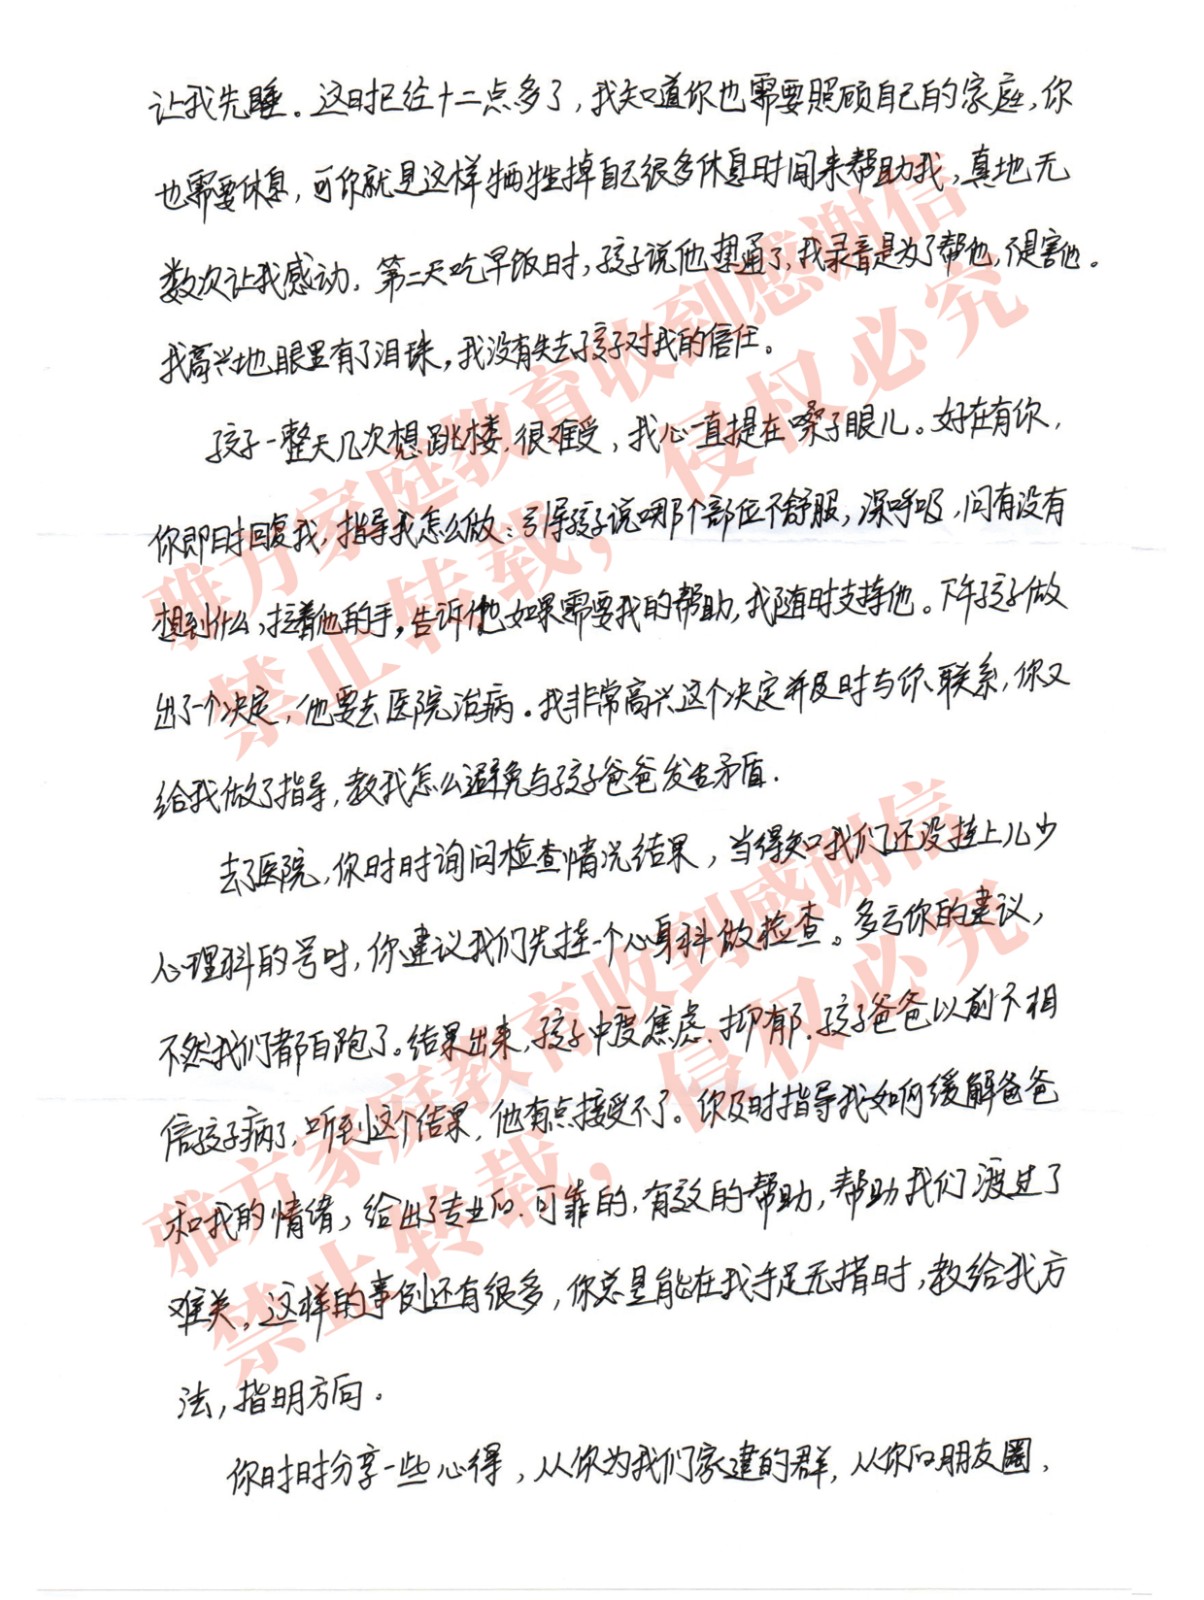 让我先睡。这时已经十二点多了，我知道你也需要照顾自己的家庭，你
也需要休息，可你就是这样牺牲掉自己很多休息时间来帮助我，真地无
数次让我感动，第二天吃早饭时，孩子说他想通了，我录音是为了帮他，不是害他。
我高兴地眼里有了泪珠，我没有失去孩子对我的信任。
孩子一整天几次想跳楼，很难受，我心一直提在嗓子眼儿。好在有你，
你即时回复我，指导我怎么做：引导孩子说哪个部位不舒服，深呼吸，问有没有
想到什么，拉着他的手，告诉他如果需要我的帮助，我随时支持他。下午孩子做
出了一个决定，他要去医院治病。我非常高兴这个决定并及时与你联系，你又
给我做了指导，教我怎么避免与孩子爸爸发生矛盾.
去了医院，你时时询问检查情况结果，当得知我们还没挂上儿少
心理科的号时，你建议我们先挂一个心身科做检查。多亏你的建议，
不然我们都白跑了。结果出来，孩子中度焦虑、抑郁.孩子爸爸以前不相
信孩子病了，听到这个结果，他有点接受不了。你及时指导我如何缓解爸爸
和我的情绪，给出了专业的、可靠的，有效的帮助，帮助我们渡过了
难关。这样的事例还有很多，你总是能在我手足无措时，教给我方
法，指明方向。
你时时分享一些心得，从你为我们家建的群，从你的朋友圈，
雅方家庭教育收到感谢信
禁止转载，侵权必究
雅方家庭教育收到感谢信
禁止转载，侵权必究